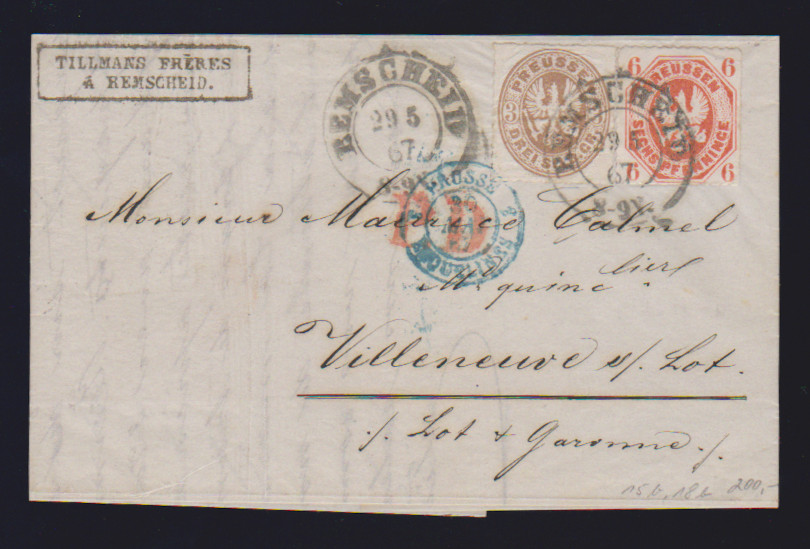 TILLMANS FRÈRES
À REMSCHEID.
REMSCHEID
29 5
67
PREUSSEN
3
DREI SILB. GR.
6 PREUSSEN 6
SECHS PFENNINGE
6 6
REMSCHEID
29 5
67
8-9V.
PRUSSE
PD
Monsieur Maurice Calmel
Md quinclier
Villeneuve s/. Lot.
/. Lot & Garonne /.
15b, 18b 200,-